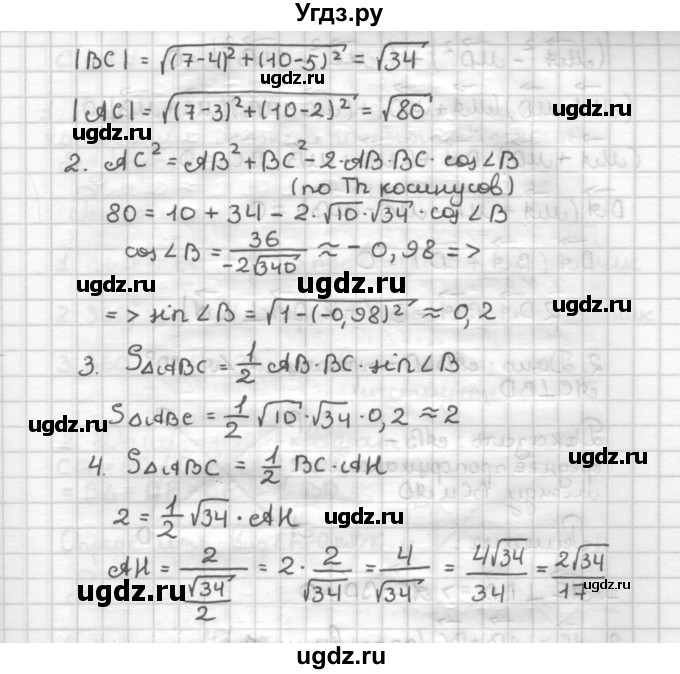 Угдз.ру
|BC| = √((7-4)² + (10-5)²) = √34
ugdz.ru
|AC| = √((7-3)² + (10-2)²) = √80
ugdz.ru ugdz.ru
2. AC² = AB² + BC² - 2·AB·BC·cos∠B
(по Th косинусов)
80 = 10 + 34 - 2·√10·√34·cos∠B
cos∠B = 36/(-2√340) ≈ -0,98 =>
ugdz.ru ugdz.ru
=> sin∠B = √(1-(-0,98)²) ≈ 0,2
3. S△ABC = 1/2 AB·BC·sin∠B
ugdz.ru
S△ABC = 1/2 √10·√34·0,2 ≈ 2
ugdz.ru
4. S△ABC = 1/2 BC·AH
2 = 1/2 √34·AH
ugdz.ru
AH = 2/(√34/2) = 2·2/√34 = 4/√34 = 4√34/34 = 2√34/17
ugdz.ru ugdz.ru
ugdz.ru